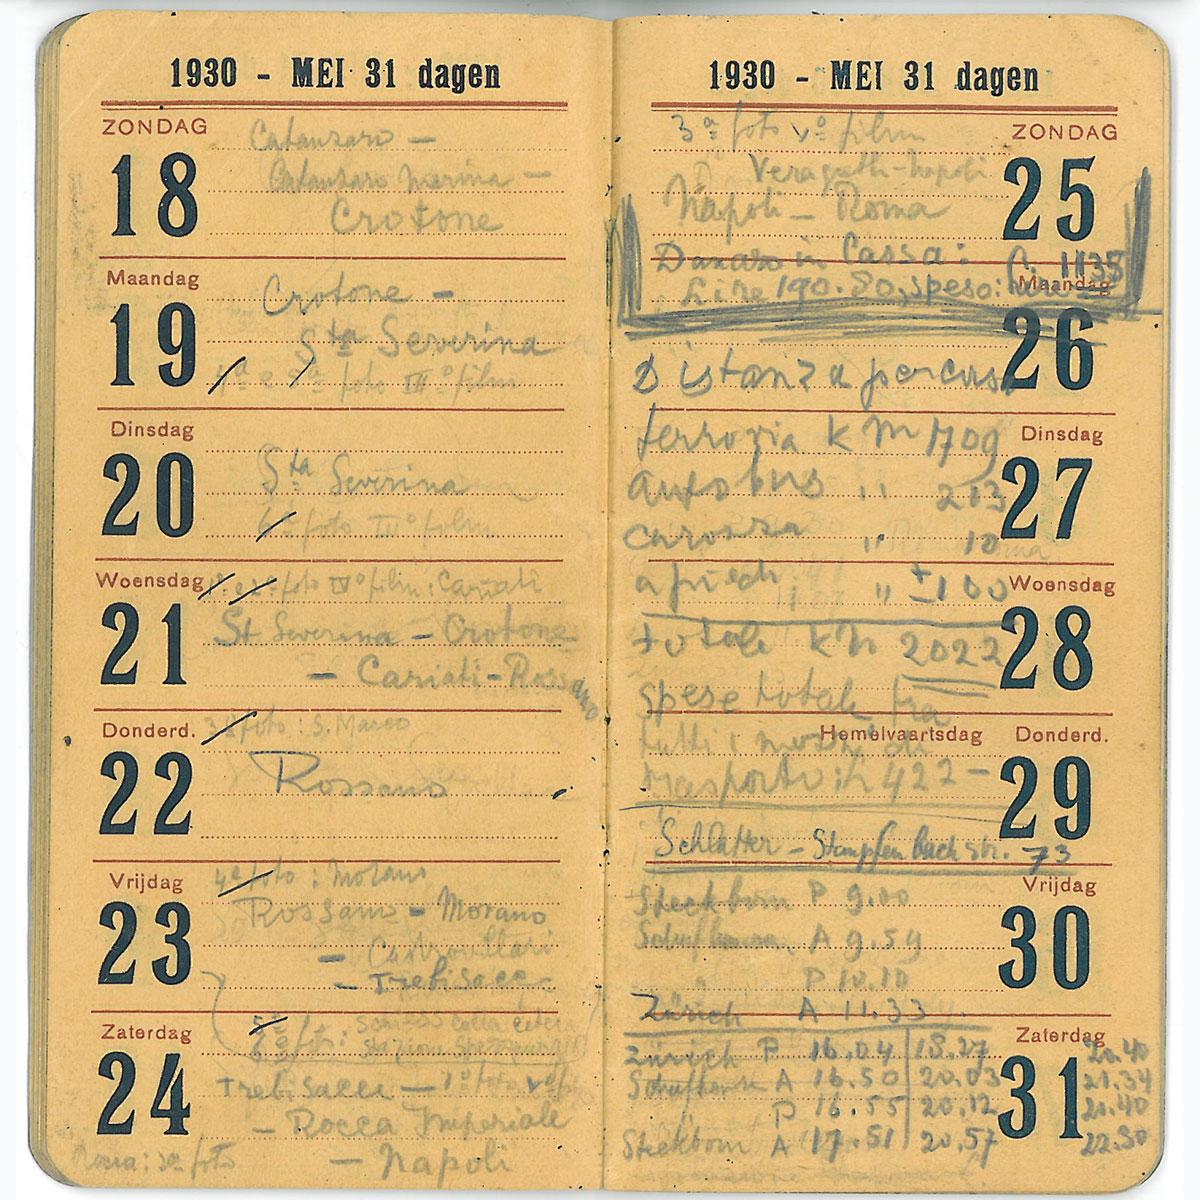 1930 - MEI 31 dagen
ZONDAG
18
Catanzaro —
Catanzaro Marina —
Crotone
Maandag
19
Crotone —
Sta Severina
4a e 5a foto IIIo film
Dinsdag
20
Sta Severina
6a foto IIIo film
Woensdag
21
1a e 2a foto IVo film: Cariati
St Severina — Crotone
— Cariati - Rossano
Donderd.
22
3a foto: S. Marco
Rossano
Vrijdag
23
4a foto: Morano
Rossano — Morano
— Castrovillari
— Trebisacce
Zaterdag
24
5a
6a foto: Stazione
Trebisacce — 1o foto Vo
— Rocca Imperiale
— Napoli
foto
1930 - MEI 31 dagen
ZONDAG
25
3a foto Vo film
Napoli
Napoli — Roma
Danaro in Cassa: 1135
Maandag
26
Lire 190.80, speso:
Distanza percorsa
Dinsdag
27
ferrovia km 1709
autobus " 203
carozza " 10
Woensdag
28
a piedi " ±100
totale km 2022
spese totale tra
Hemelvaartsdag Donderd.
29
tutti i mezzi di
trasporto 422 —
Schlatter — Stampfenbachstr. 73
Vrijdag
30
Steckborn P 9.00
Schaffhausen A 9.59
" P 10.10
Zürich A 11.33
Zaterdag
31
Zürich P 16.04 18.27 20.40
Schafhausen A 16.50 20.03 21.34
P 16.55 20.12 21.40
Steckborn A 17.51 20.57 22.30